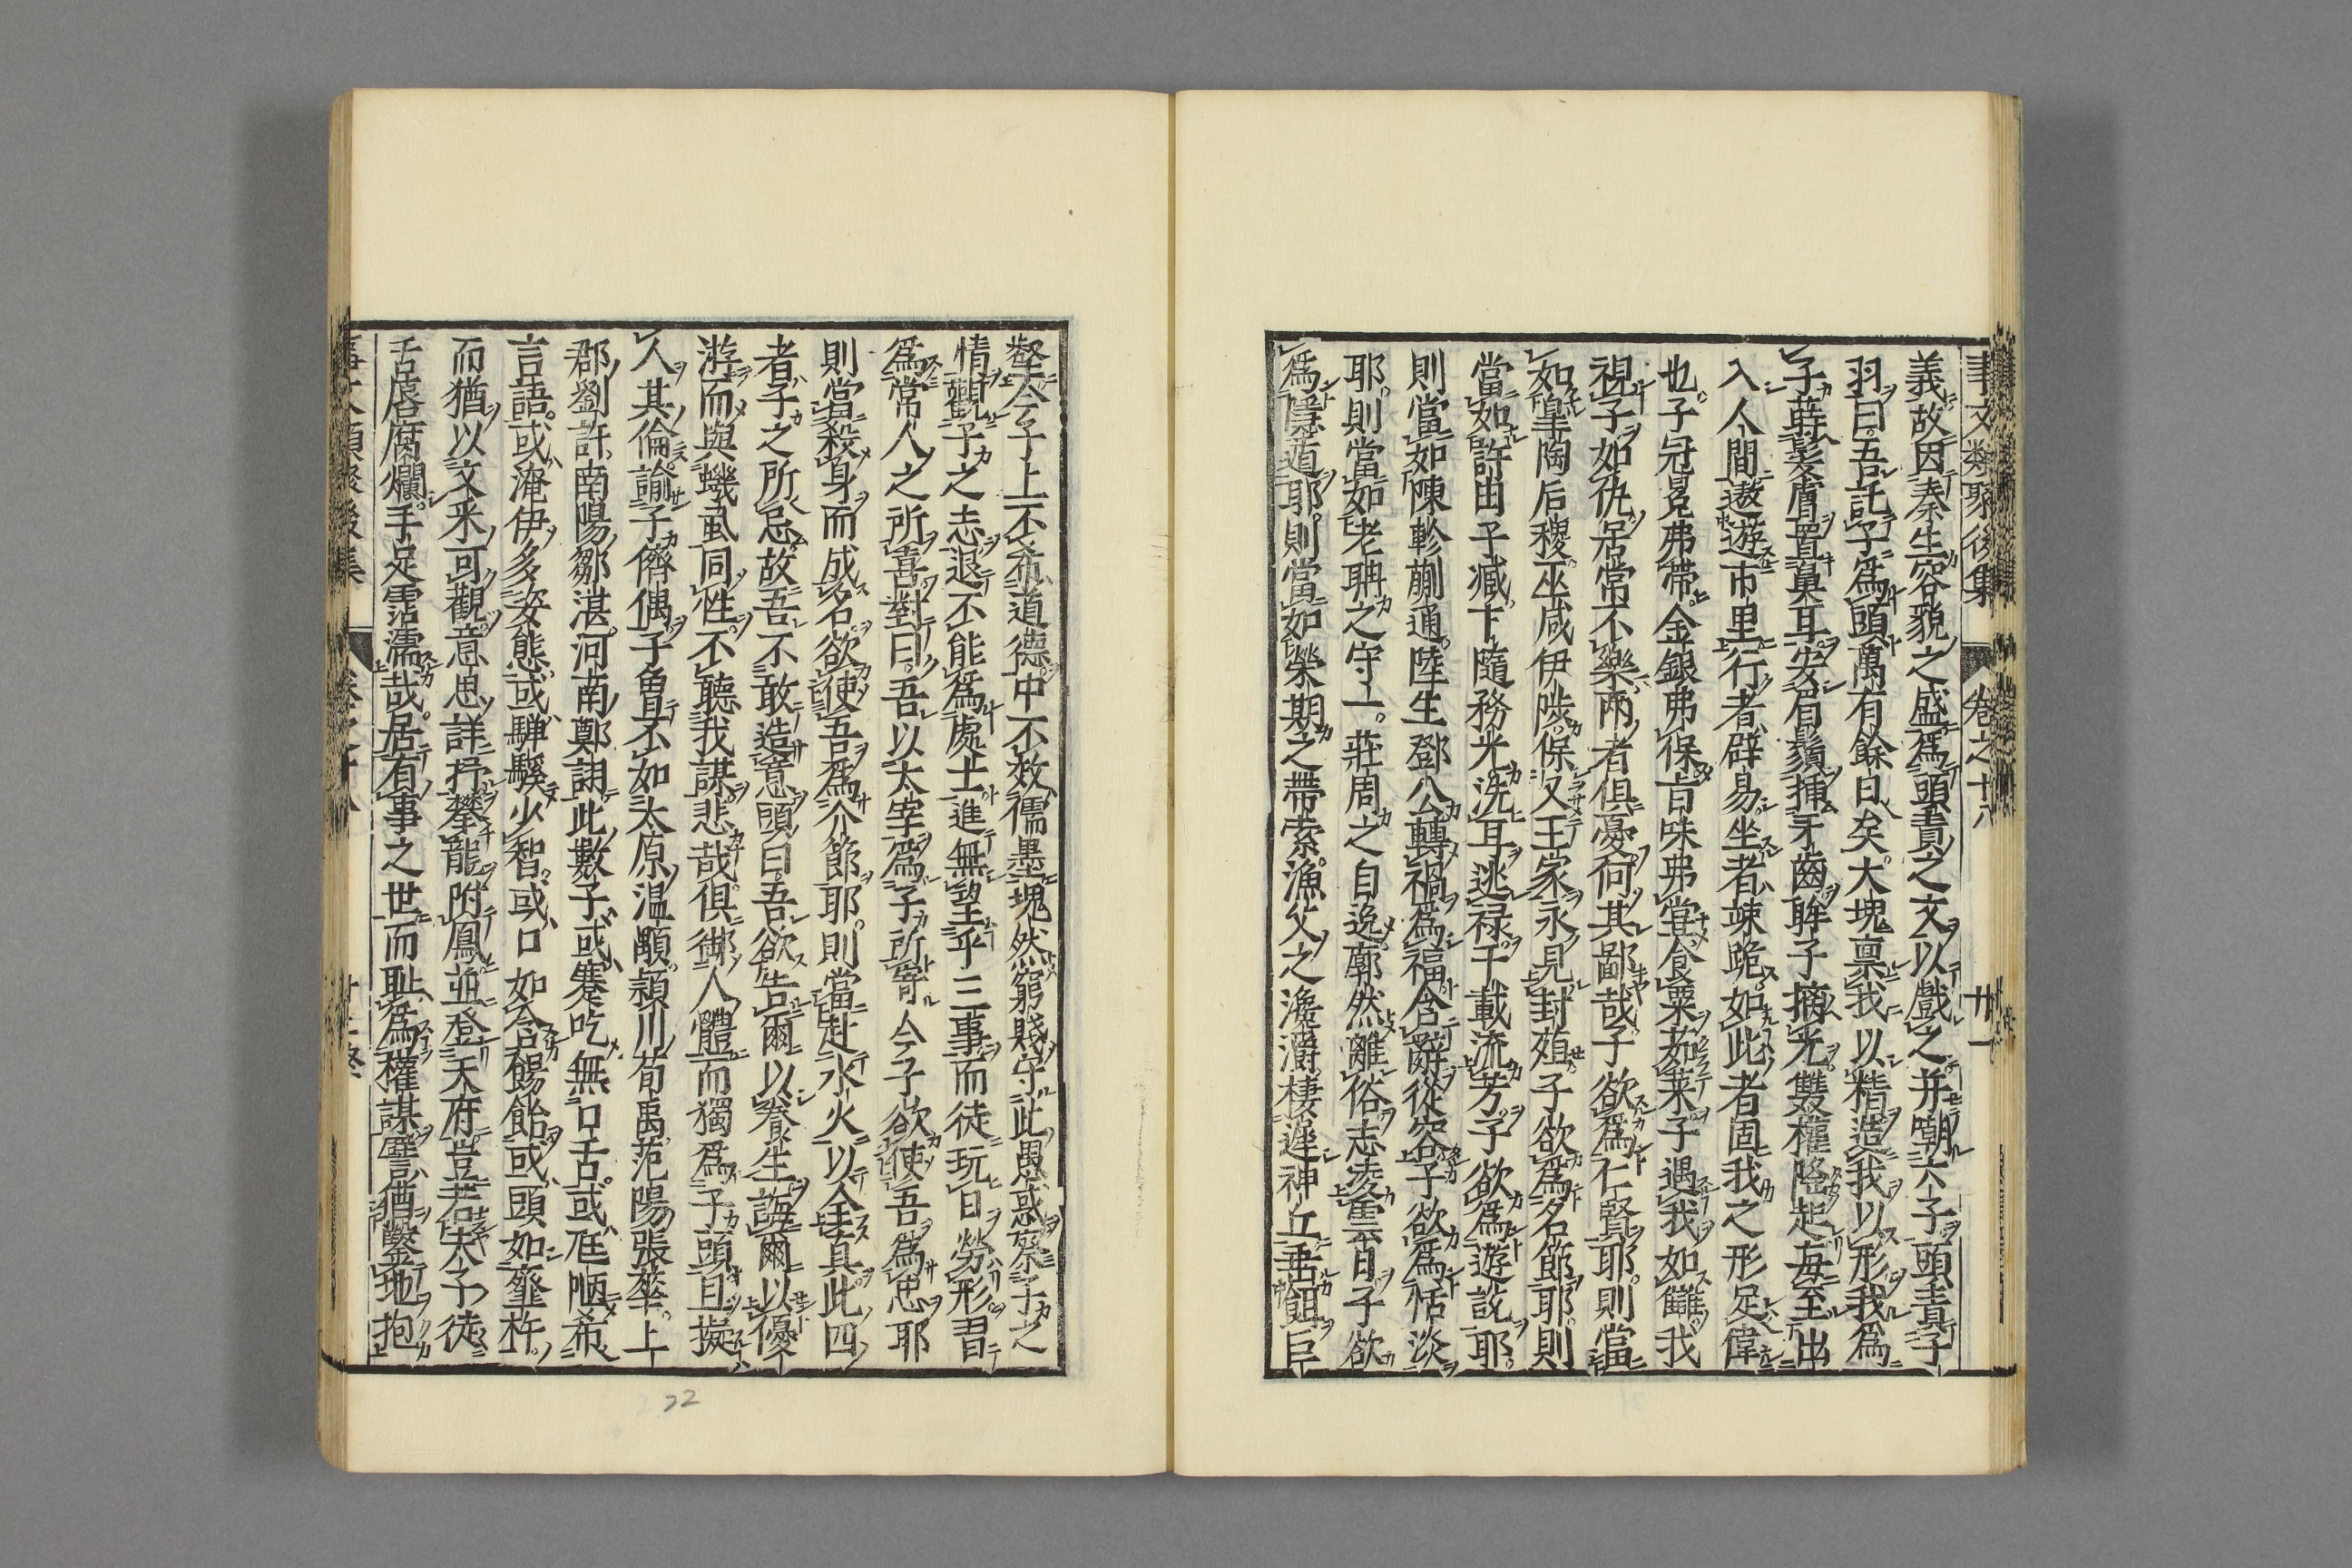 事文類聚後集 卷之十八 廿一
義故因秦生容貌之盛爲頭責之文以戲之并嘲六子頭責子
羽曰吾託子爲頭萬有餘日矣大塊禀我以精造我以形我爲
子蒔髮膚置鼻耳安眉鬚挿牙齒眸子摛光雙權隆起毎至出
入人間遨遊市里行者辟易坐者竦跪如此者固我之形足偉
也子冠冕弗帶金銀弗保旨味弗甞食粟茹菜子遇我如讎我
視子如仇居常不樂兩者俱憂何其鄙哉子欲爲仁賢耶則當
如皐陶后稷巫咸伊陟保乂王家永見封殖子欲爲名節耶則
當如許由子臧卞隨務光洗耳逃禄千載流芳子欲爲遊說耶
則當如陳軫蒯通陸生鄧公轉禍爲福含辭從容子欲爲恬淡
耶則當如老聃之守一莊周之自逸廓然離俗志凌雲日子欲
爲隱遁耶則當如榮期之帶索漁父之瀺灂棲遲神丘垂餌巨
壑今子上不希道德中不效儒墨塊然窮賤守此愚惑察子之
情觀子之志退不能爲處士進無望乎三事而徒玩日勞形習
爲常人之所喜對曰吾以太宰爲子所寄今子欲使吾爲忠耶
則當殺身而成名欲使吾爲介節耶則當赴水火以全真此四
者子之所忌故吾不敢造意頭曰吾欲告爾以養生誨爾以優
游而與蟣虱同性不聽我謀悲哉俱御人體而獨爲子頭且擬
人其倫諭子儕偶子曾不如太原温顒潁川荀禹范陽張華上
郡劉許南陽鄒湛河南鄭詡此數子或蹇吃無口舌或尪陋希
言語或淹伊多姿態或驒騱少智或口如含餳飴或頭如虀杵
而猶以文采可觀意思詳抒攀龍附鳳並登天府豈若夫子徒
舌脣腐爛手足霑濡哉居有事之世而耻爲權謀譬猶鑿地抱
卷之十八
22